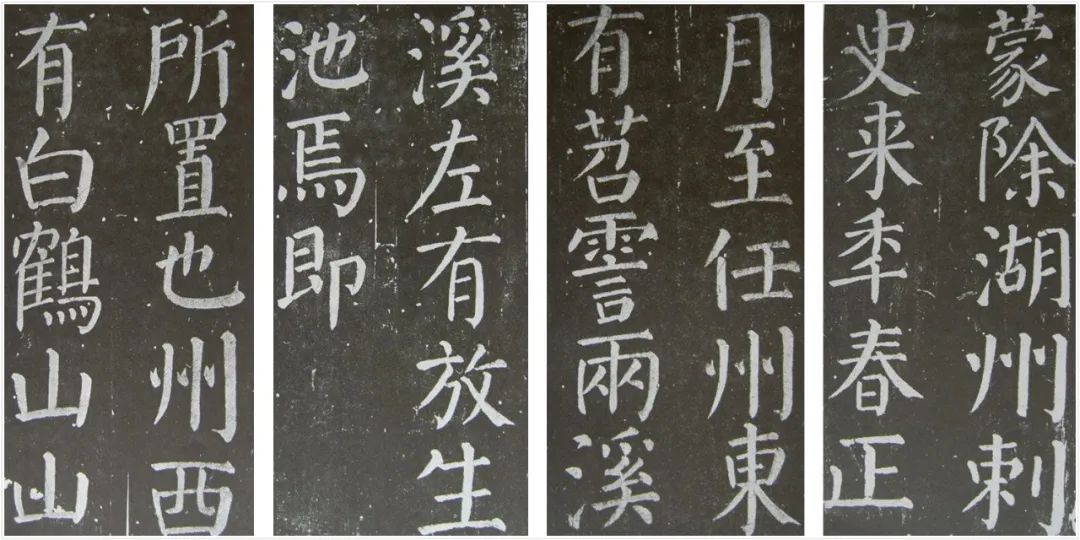 蒙除湖州刺
史来秊春正
月至任州東
有苕霅兩溪
溪左有放生
池焉即
所置也州西
有白鶴山山